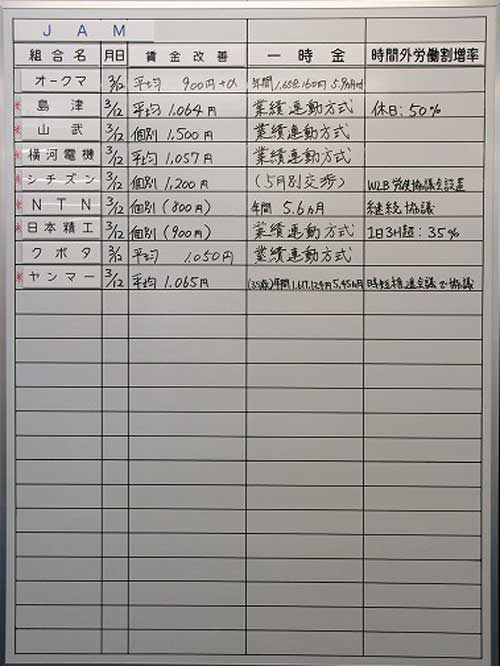 JAM
組合名 月日 賃金改善 一時金 時間外労働割増率
オークマ 3/12 平均 900円+α 年間1,658,160円 5.9ヵ月
*島津 3/12 平均 1,064円 業績連動方式 休日:50%
*山武 3/12 個別 1,500円 業績連動方式
*横河電機 3/12 平均 1,057円 業績連動方式
*シチズン 3/12 個別 1,200円 (5月別交渉) WLB労使協議会設置
*NTN 3/12 個別(800円) 年間 5.6ヵ月 継続協議
*日本精工 3/12 個別(900円) 業績連動方式 1日3H超:35%
クボタ 3/12 平均 1,050円 業績連動方式
*ヤンマー 3/12 平均 1,065円 (35歳)年間1,617,124円 5.45ヵ月 時短推進会議で協議